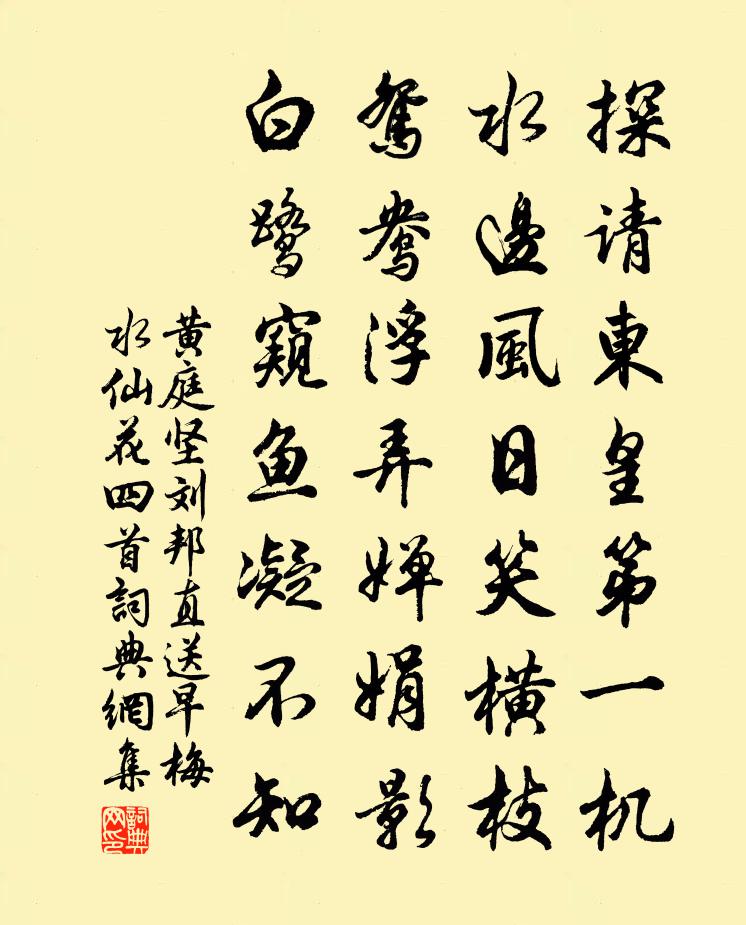 探请東皇第一机
水邊風日笑横枝
鸳鸯浮弄婵娟影
白鹭窥鱼凝不知
黄庭坚刘邦直送早梅
水仙花四首詞典網集
詞典网印